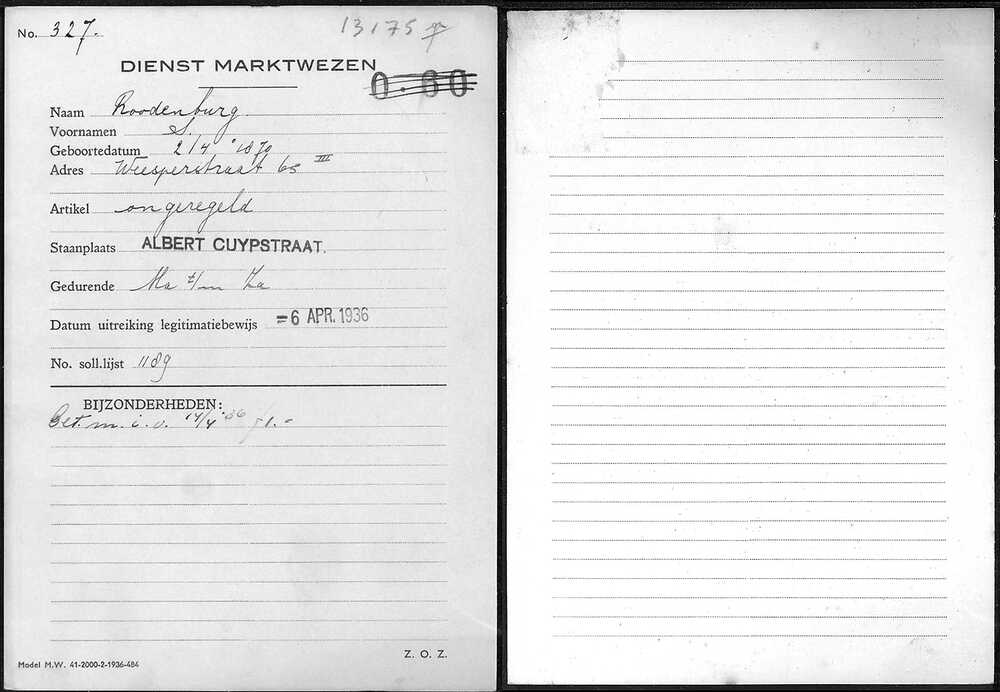 No. 327.
13175
DIENST MARKTWEZEN
0.60
Naam Roodenburg.
Voornamen S.
Geboortedatum 2/4 '1870
Adres Weesperstraat 65 III
Artikel ongeregeld
Staanplaats ALBERT CUYPSTRAAT.
Gedurende Ma t/m Za
Datum uitreiking legitimatiebewijs =6 APR. 1936
No. soll.lijst 1189
BIJZONDERHEDEN:
Bet. m. i. v. 14/4 '36 f 1.-
Z. O. Z.
Model M.W. 41-2000-2-1936-484